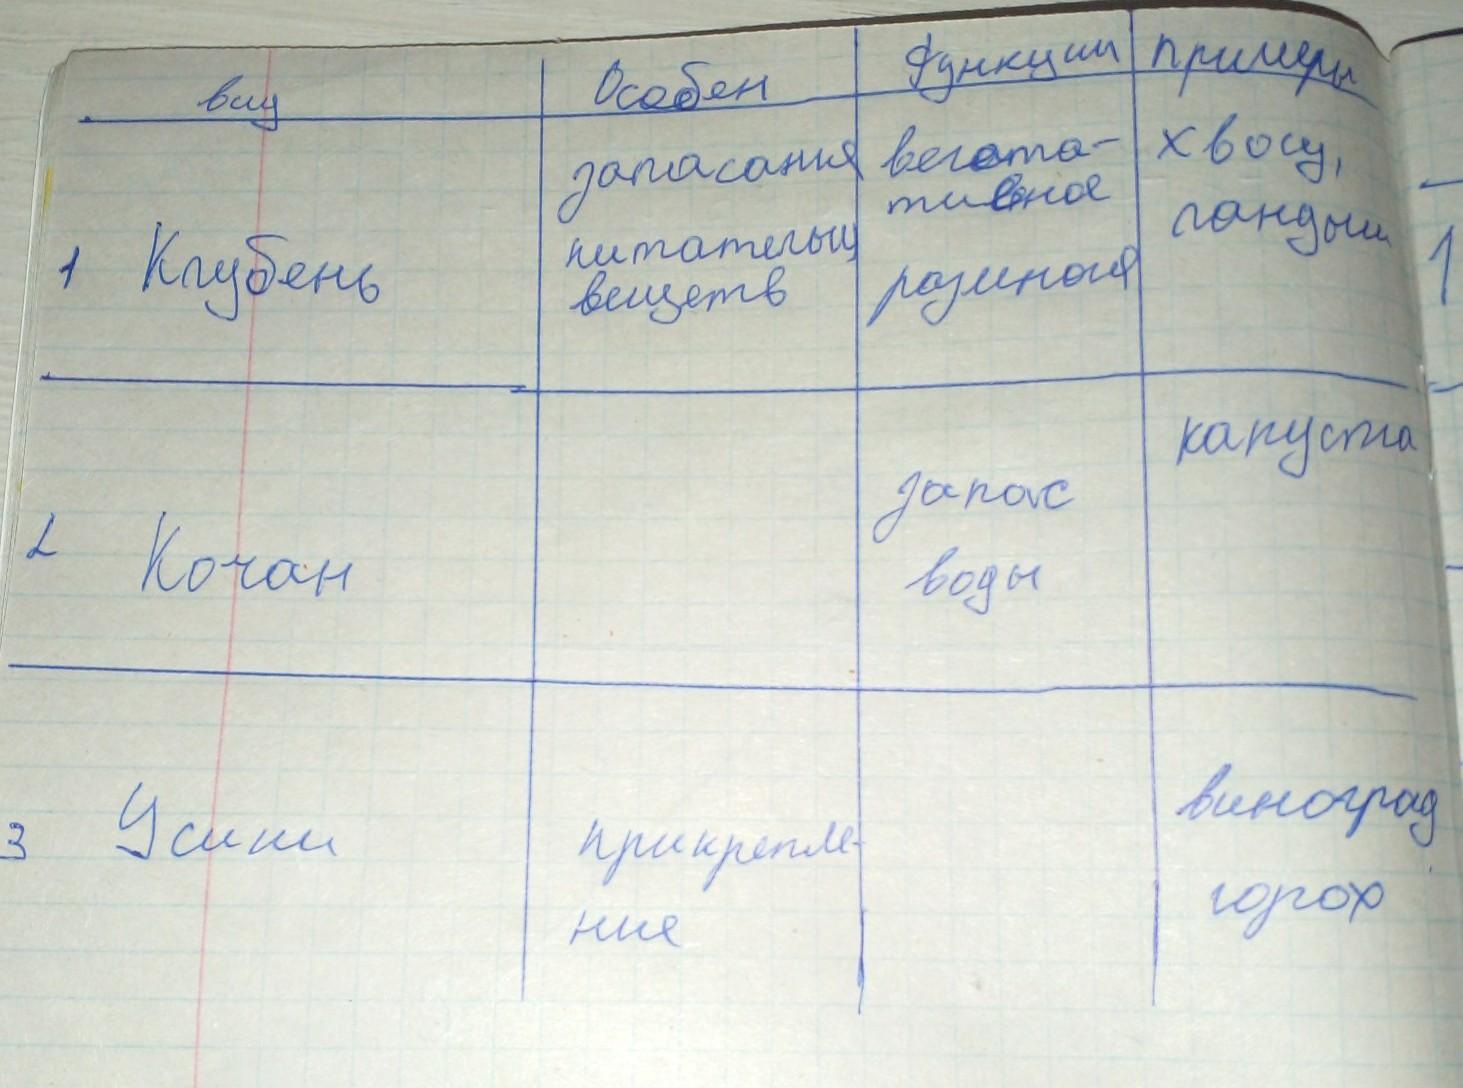 вид Особен Функции примеры
1 Клубень запасания питательных веществ вегета- тивное размнож хвощ, ландыш
2 Кочан запас воды капуста
3 Усики прикрепле- ние виноград горох
1